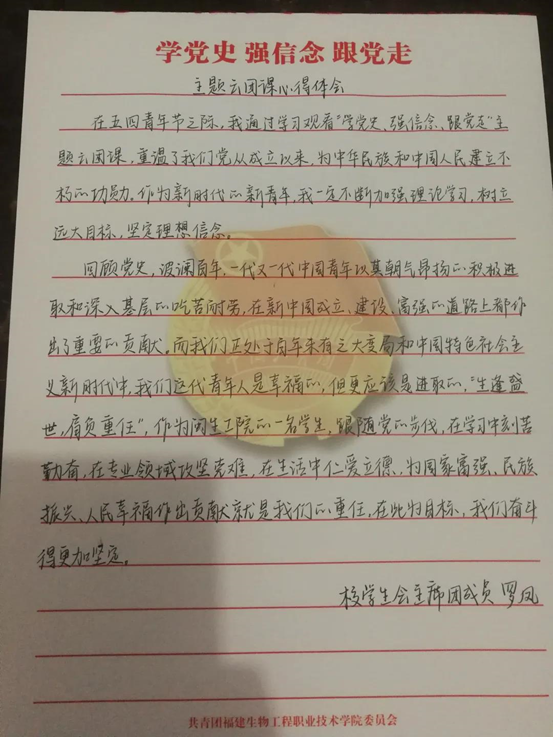 学党史 强信念 跟党走
主题云团课心得体会
在五四青年节之际，我通过学习观看“学党史、强信念、跟党走”主
题云团课，重温了我们党从成立以来，为中华民族和中国人民建立不
朽的功勋。作为新时代的新青年，我一定不断加强理论学习，树立
远大目标，坚定理想信念。
回顾党史，波澜百年，一代又一代中国青年以其朝气昂扬的积极进
取和深入基层的吃苦耐劳，在新中国成立、建设、富强的道路上都作
出了重要的贡献。而我们正处于百年未有之大变局和中国特色社会主
义新时代中，我们这代青年人是幸福的，但更应该是进取的，“生逢盛
世，肩负重任”，作为闽生工院的一名学生，跟随党的步伐，在学习中刻苦
勤奋，在专业领域攻坚克难，在生活中仁爱立德，为国家富强、民族
振兴、人民幸福作出贡献就是我们的重任，在此为目标，我们奋斗
得更加坚定。
校学生会主席团成员 罗凤
共青团福建生物工程职业技术学院委员会